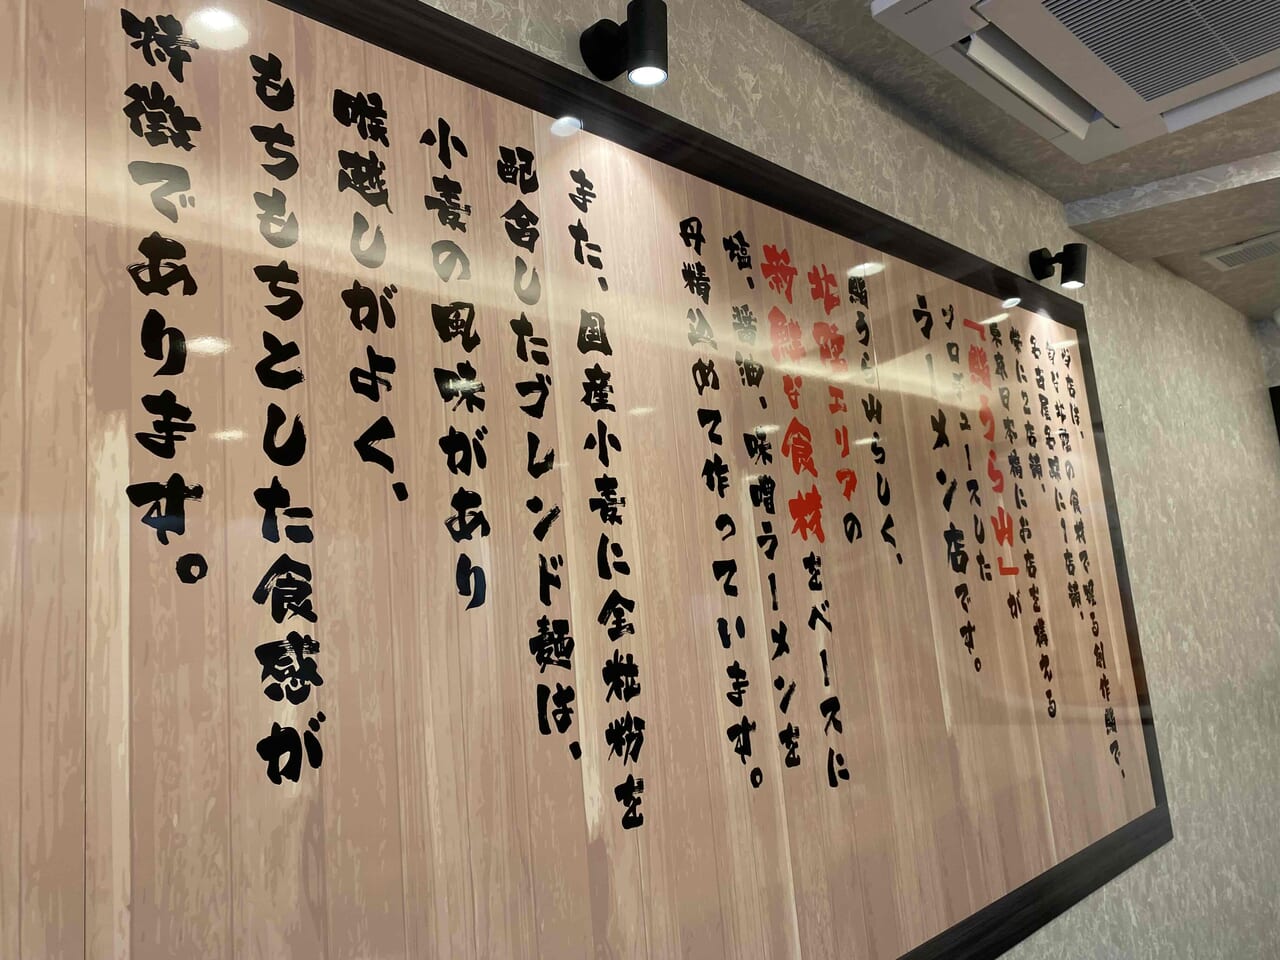 当店は、
旬な北陸の食材で握る創作鮨で、
名古屋名駅に1店舗、
味に2店舗、
東京日本橋にお店を構える
「鮨うら山」が
プロデュースした
ラーメン店です。
鮨うら山らしく、
北陸エリアの
新鮮な食材をベースに
塩、醤油、味噌ラーメンを
丹精込めて作っています。
また、国産小麦に全粒粉を
配合したブレンド麺は、
小麦の風味があり
喉越しがよく、
もちもちとした食感が
特徴であります。